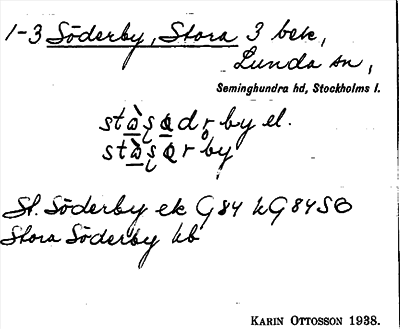 1-3 Söderby, Stora 3 bek,
Lunda sn,
Seminghundra hd, Stockholms l.
by el.
by
St. Söderby ek G84 kG84SO
Stora Söderby kb
KARIN OTTOSSON 1938.